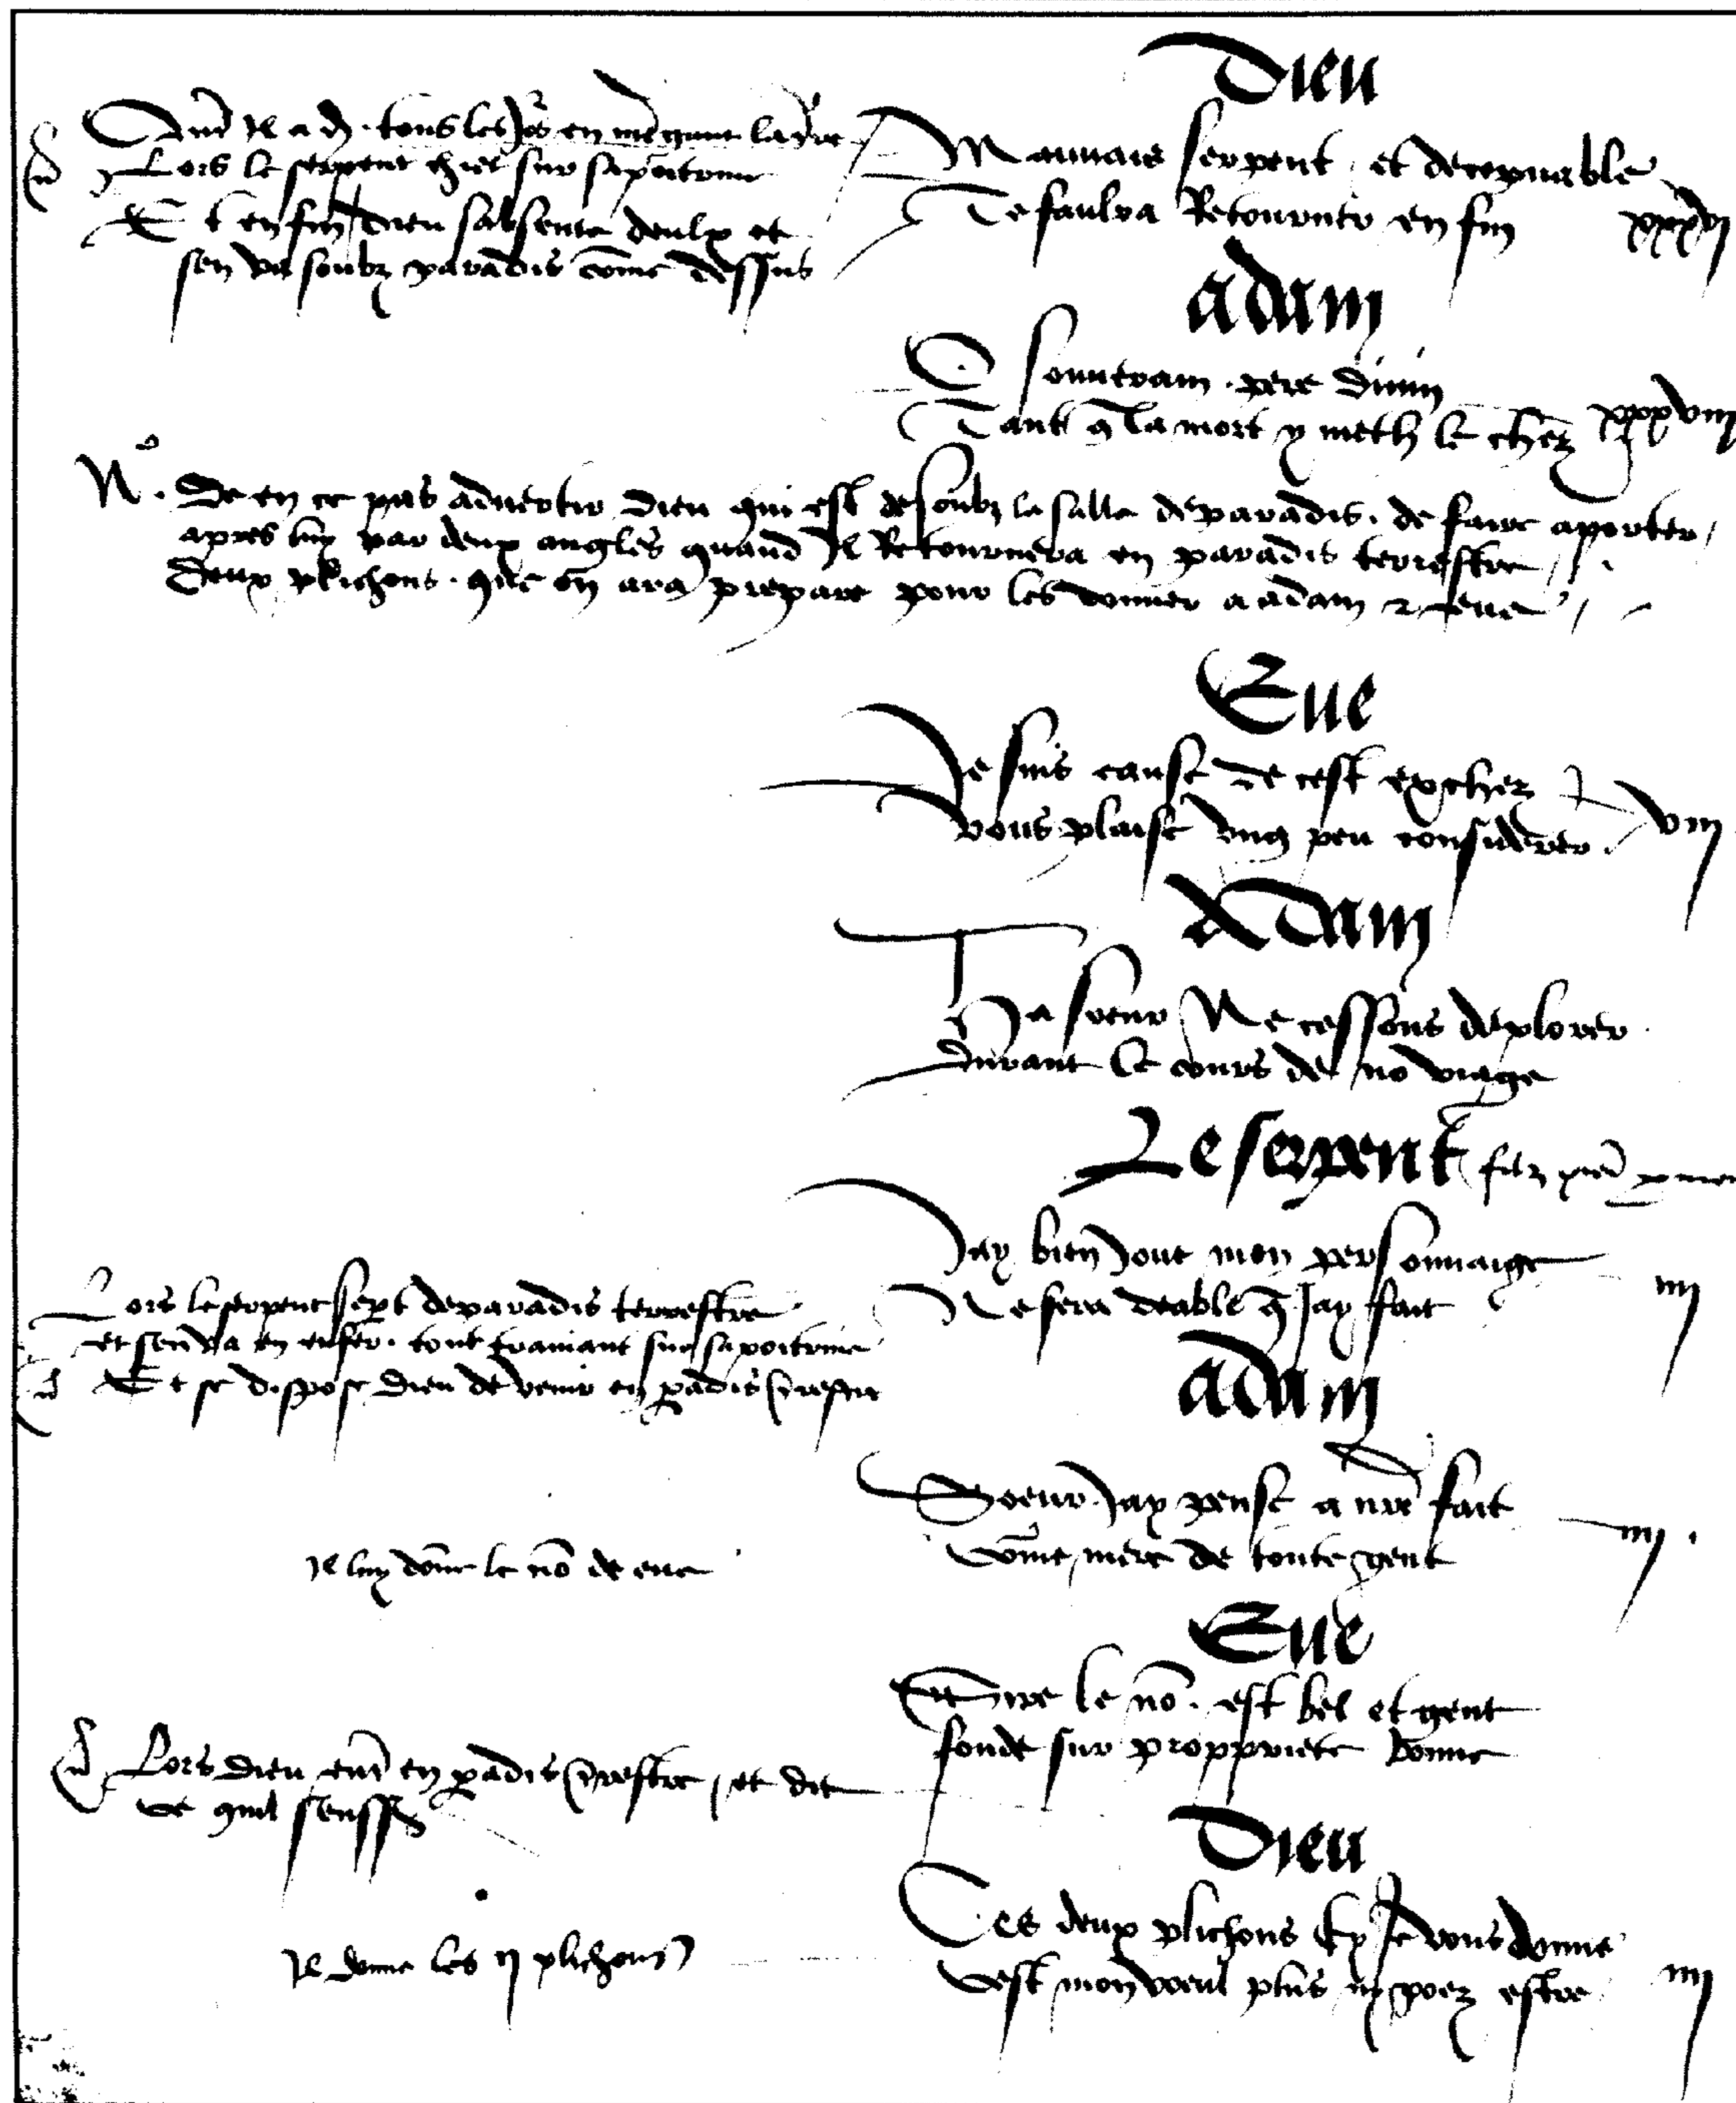 Dieu
Quant Il a dit . tous les Jors en mengant la
Lors le serpent chiet sur sa poitrine
Et en fin dieu sabsente deulx et
sen va soubz paradis come dessus
Mauuais serpent et decepuable
Te faulra Retourner en fin xxxvj
adam
O souuerain . pere diuin
Tant q la mort y meth le chez xxxviij
No . De en ce pas aduertir dieu qui est desoubz la salle de paradis . de faire aporter /
apres luy par deux angles quand Il Retournera en paradis terrestre / .
deux plichons . que on ara prepare pour les donner a adam z eue /
Eue
Je suis cause de cest exchez
vous plaise ung peu considerer . viij
Adam
Ha soeur Ne cessons de plorer .
durant le cours de no viage
Le serpent filz
Jay bien Joue mon personnaige
Ne fera deable q Jay fait iiij
Lors le serpent sept de paradis terrestre
et sen va en enfer . tout trainant sur sa poitrine
Et se dispose dieu de venir en padis trestre
adam
Soeur Jay pense a nre fait
come mere de toute gent iiij .
Il luy done le no de eue
Eue
Sire le no . est bel et gent
fonde sur proppriete bonne
Lors dieu en padis trestre / et dit
ce quil sensst
Dieu
Ces deux plichons Icy Je vous donne
cest mon voeul plus ny poez estre iiij
Il donne les ij plichons